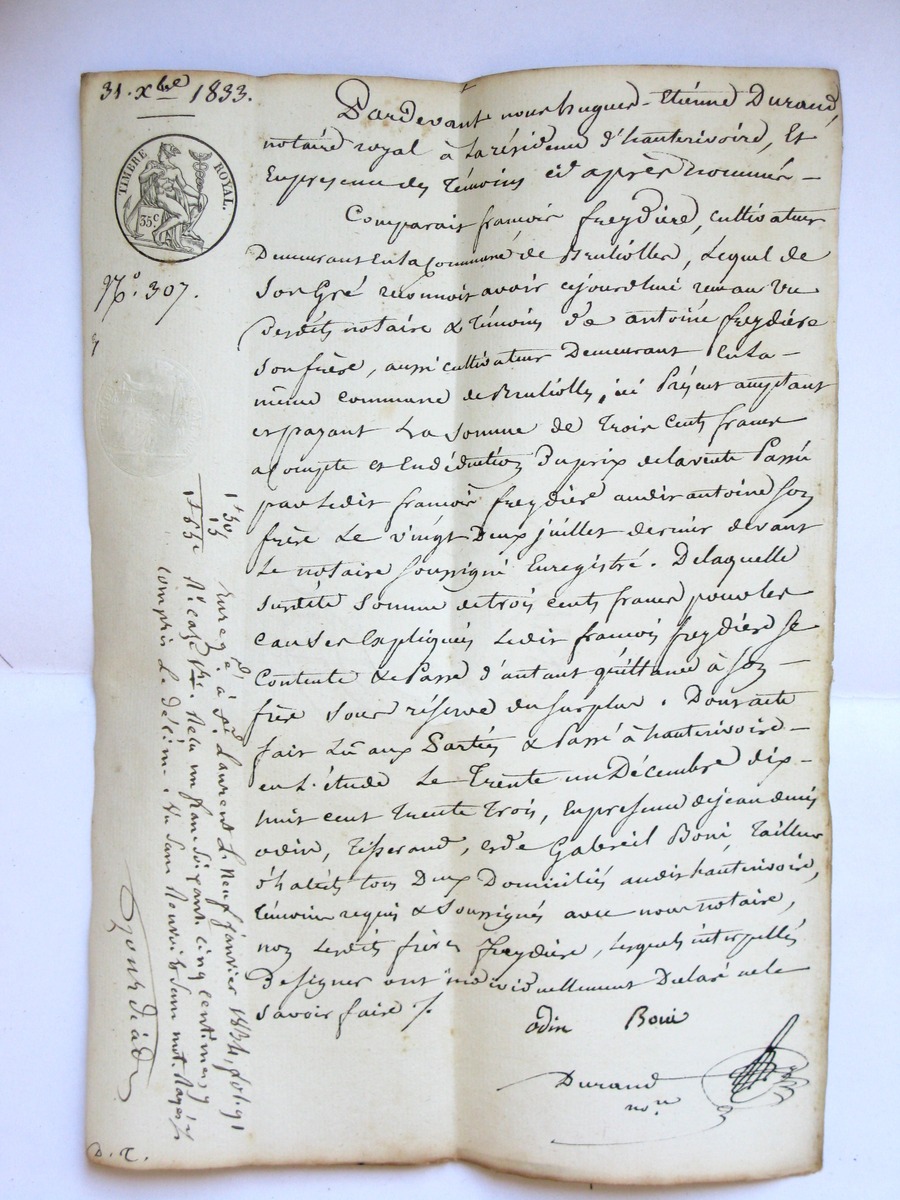 31. Xbre 1833.
TIMBRE ROYAL.
35c
No. 307.
Pardevant nous hugues-Etienne Durand,
notaire royal à la résidence d'hauterivoire, Et
En presence des Témoins cid après nommés —
Comparait francois freydière, cultivateur
Demeurant En la Commune de Brulliolles, Lequel de
Son Gré reconnoit avoir cejourdhui reçu au Vu
Desdits notaire & Témoins de antoine freydière
Son frère, aussi cultivateur Demeurant En la —
même commune de Brulliolles, ici Présent acceptant
et payant La Somme de Trois Cents francs
acompte et En déduction Du prix de la vente Passée
par Ledit francois freydière audit antoine Son
frère Le vingt Deux juillet dernier devant
Le notaire Soussigné Enregistré. De laquelle
Susdite Somme de trois cents francs pour les
causes Expliquées Ledit francois freydière Se
Contente & Passe d'autant quittance à Son —
frère Sous réserve du Surplus. Dont acte
fait Lû aux Parties & Passé à hauterivoire —
en L'étude Le Trente un Décembre dix —
huit cent trente Trois, En presence de jean denis
odin, Tisserand, et de Gabreil Boni Tailleur
d'habits tous Deux Domiciliés audit hauterivoire,
Témoins requis & Soussignés avec nous notaire,
non Lesdits frères freydière, Lesquels interpellés
De signer ont individuellement Déclaré ne le
Savoir faire ./.
odin Boni
Durand
nore
1"50
15
1"65c
Enregé à St Laurent Le neuf janvier 1834, fol. 91
Ro case Recu un franc Soixante cinq centimes, y
compris Le décime. Vu Sans Renvois Sans mot Rayés
D. T.